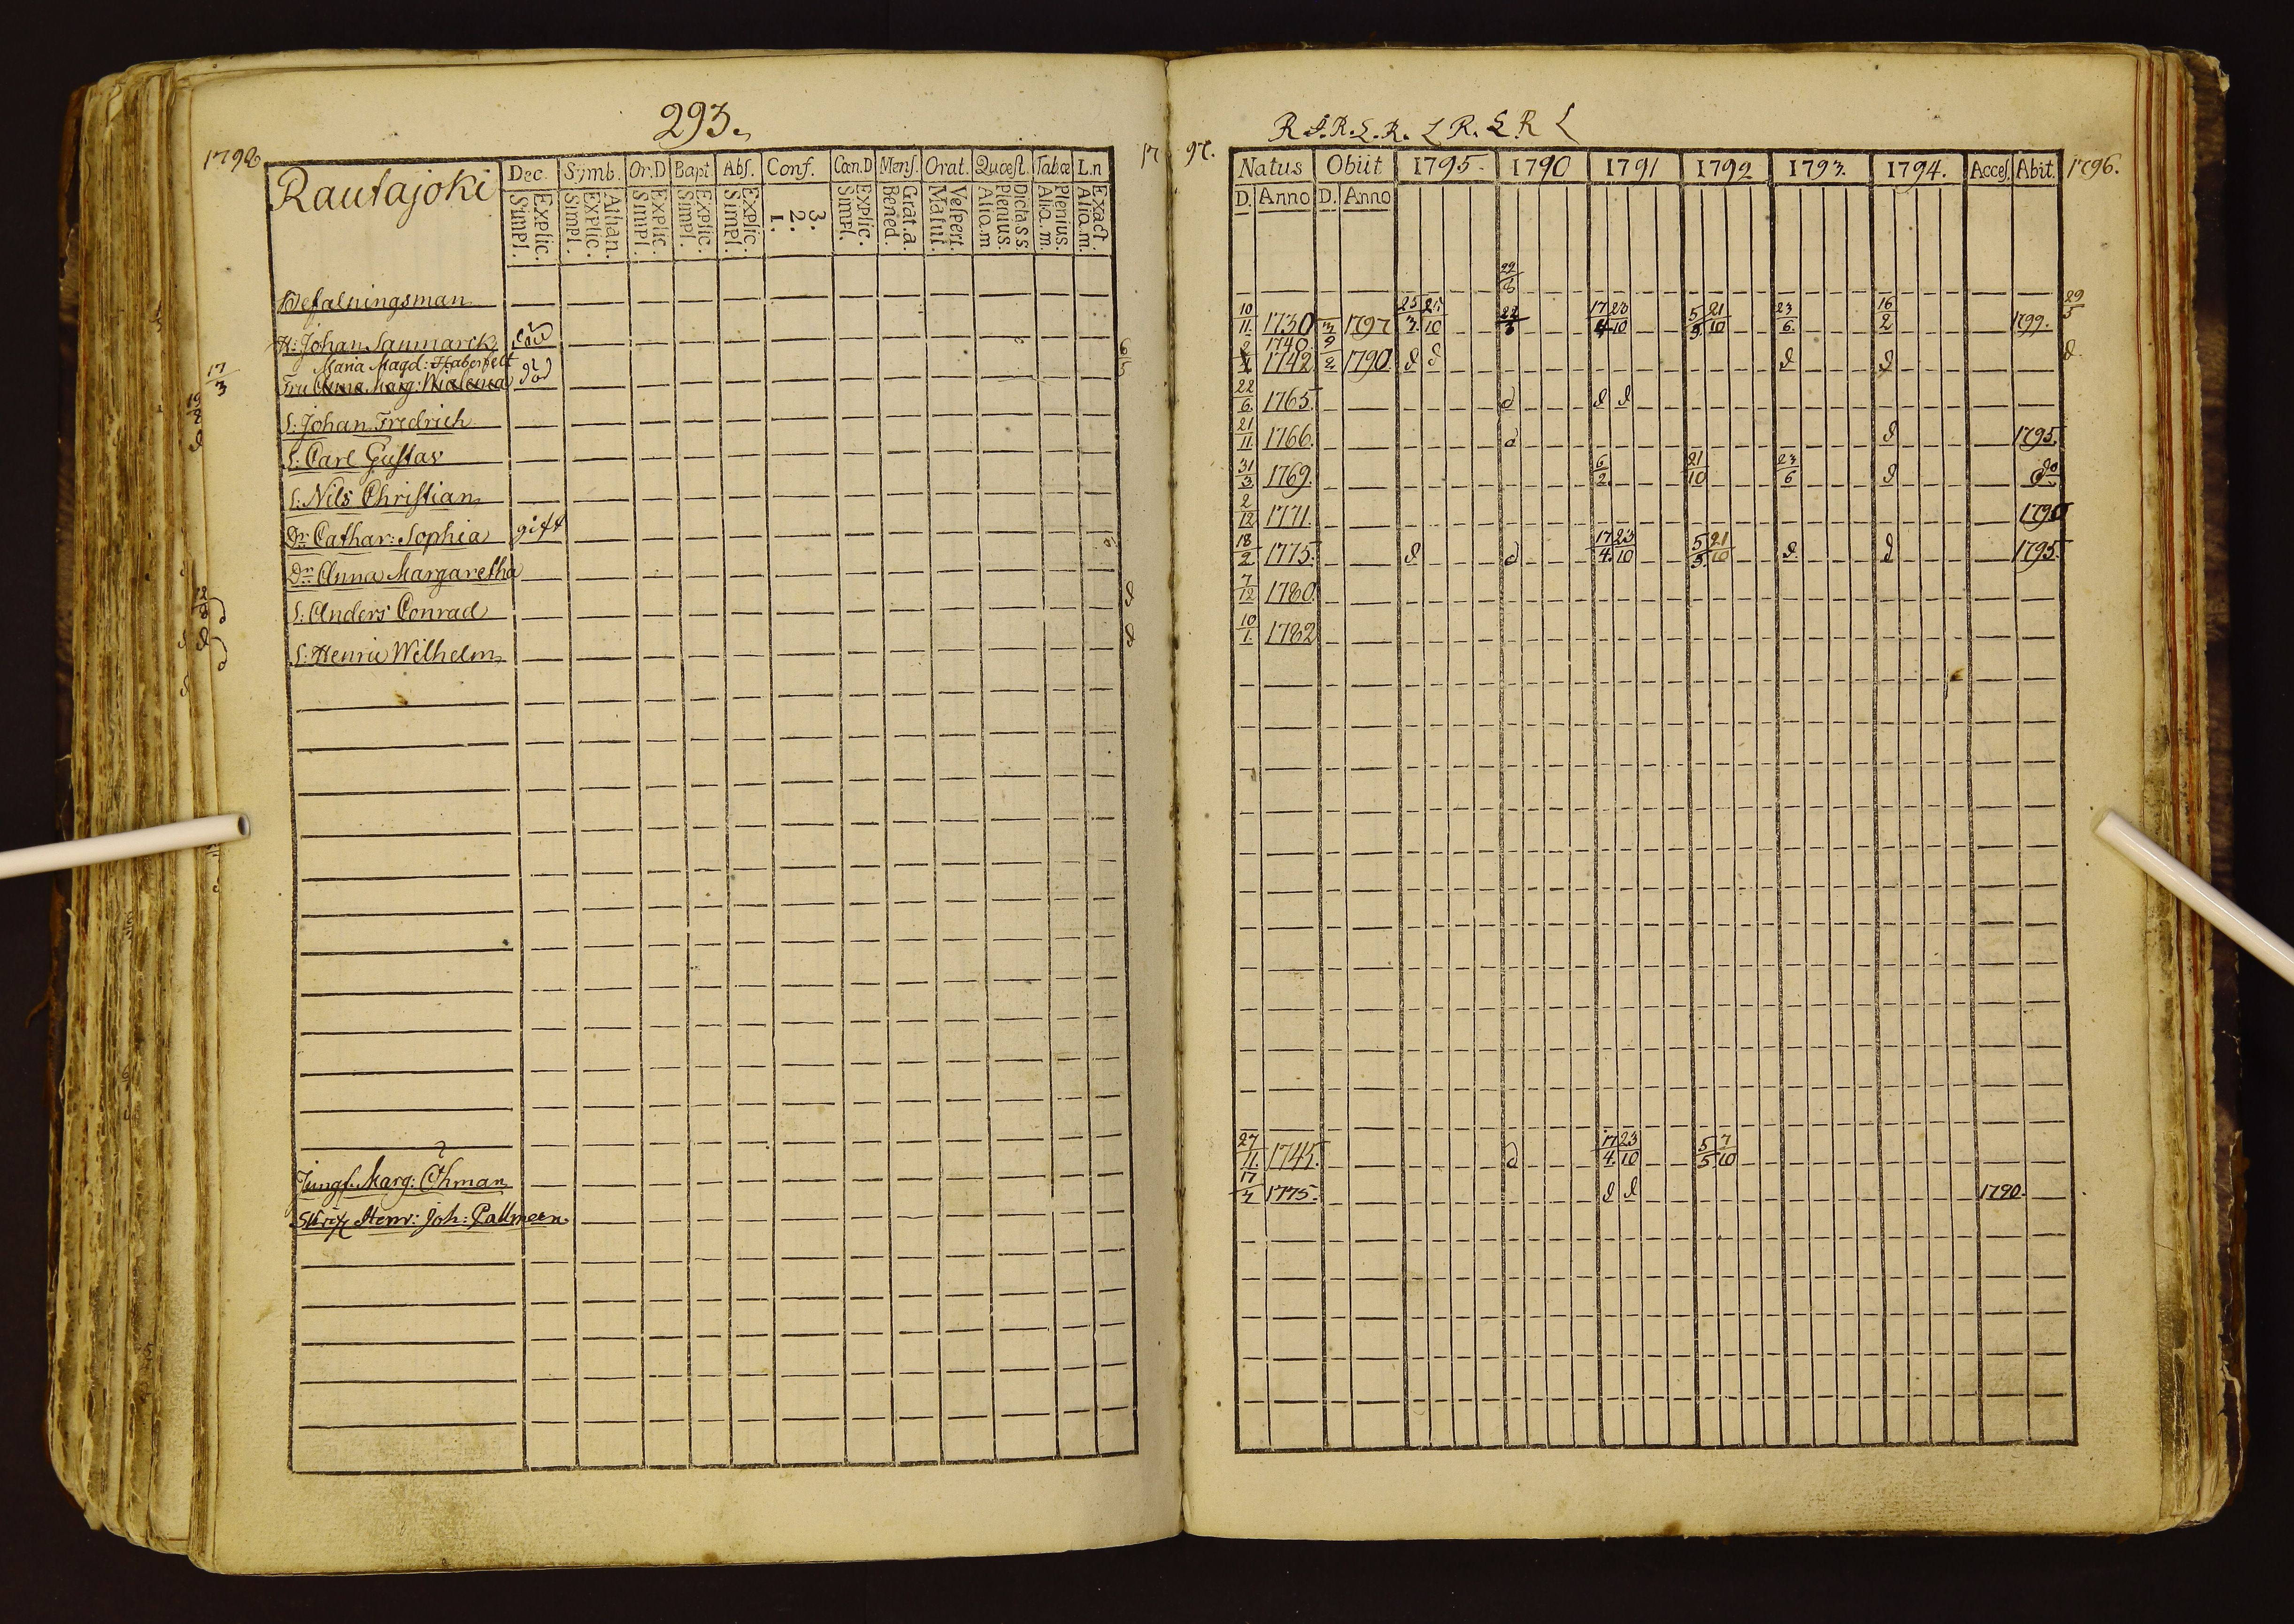 293.
1798
Rautajoki
Dec. Symb. Or.D Bapt. Abs. Conf. Cœn.D Mens. Orat. Quæst. Tabœ L.n
Explic. Simpl. Athan. Explic. Simpl. Explic. Simpl. Explic. Simpl. Explic. Simpl. 3. 2. 1. Explic. Simpl. Grat.a. Bened. Vespert. Matut. Dicta s s. Plenius. Aliq.m Plenius. Aliq.m. Exact. Aliq.m.
Befalningsman
H: Johan Saumarck död
Maria Magd: Haberfelt
Fru död
17/3
6/5
S: Johan Fredrich
S: Carl Gustav
S: Nils Christian
Dr Cathar: Sophia gift
Dr Anna Margaretha
S: Anders Conrad
S: Henric Wilhelm
Jungf. Marg: Ehman
Henr: Joh:
17 97.
R. S. R. S. R. L R. S. R L
Natus Obiit 1795 1790 1791 1792 1793. 1794. Acces. Abit. 1796.
D. Anno D. Anno
10/11. 1730 1797 25/3. 25/10 17/4 23/10 5/5 21/10 23/6. 16/2 1799. 29/5
1740
1742 9/2 1790 d d d d d
22/6. 1765 d d d
21/11. 1766. d d 1795.
31/3 1769. 6/2 21/10 23/6 d do
2/12 1771. 1790
18/2 1775. d d 17/4 23/10 5/5 21/10 d d 1795
7/12 1780.
10/1. 1782
27/11. 1745. d 17/4. 23/10 5/5 7/10
17/4 1775. d d 1790.